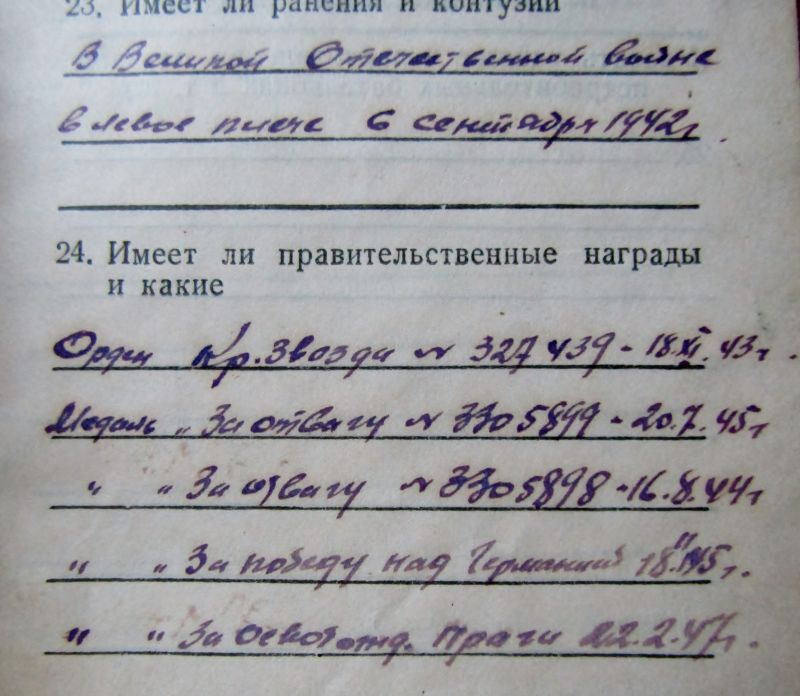 23. Имеет ли ранения и контузии
В Великой Отечественной войне
в левое плече 6 сентября 1942г.
24. Имеет ли правительственные награды
и какие
Орден Кр. Звозда № 327439 - 18.XI.43г.
Медаль „ За отвагу № 3305899 - 20.7.45г
„ „ За отвагу № 3305898 - 16.8.44г
„ „ За победу над Германией
„ „ За освобожд. Праги 22.2.47г.